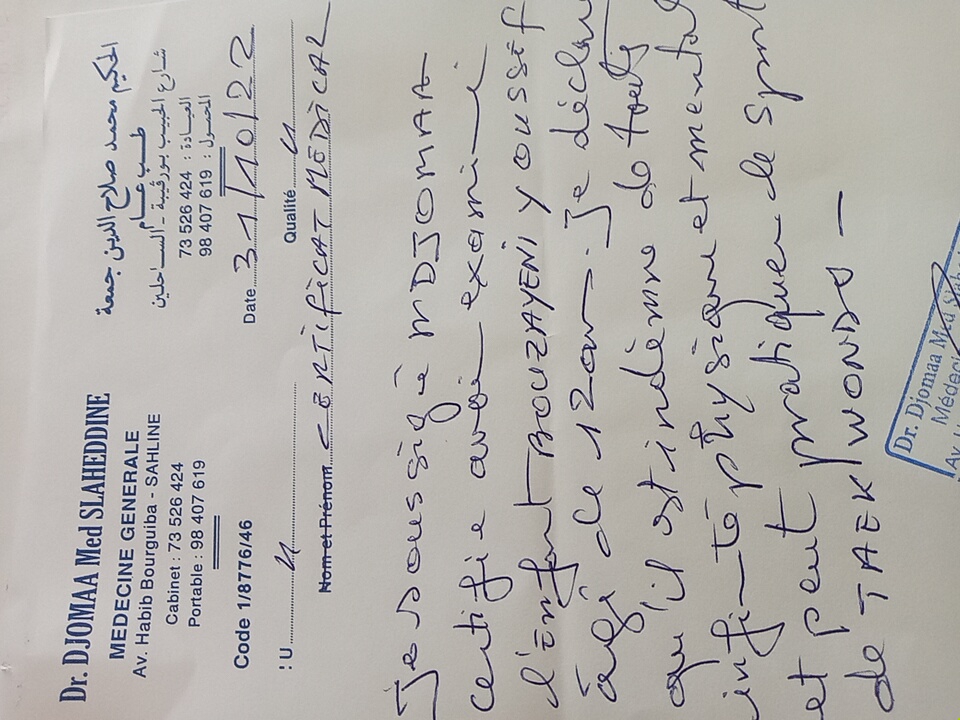 Dr. DJOMAA Med SLAHEDDINE
MEDECINE GENERALE
Av. Habib Bourguiba - SAHLINE
Cabinet : 73 526 424
Portable : 98 407 619
الحكيم محمد صلاح الدين جمعة
طب عام
شارع الحبيب بورقيبة - الساحلين
العيادة : 424 526 73
المحمول : 619 407 98
Code 1/8776/46
Date 31/10/22
: U
Qualité
Nom et Prénom CERTIFICAT MÉDICAL
Je soussigné M DJOMAA
certifie avoir examiné
l'enfant BOUZAYENI YOUSSEF
âgé de 12 ans. Je déclare
qu'il est indemne de toute
infirmité physique et mentale
et peut pratiquer le sport
de TAEKWONDO -
Dr. Djomaa Med
Médeci
Av.